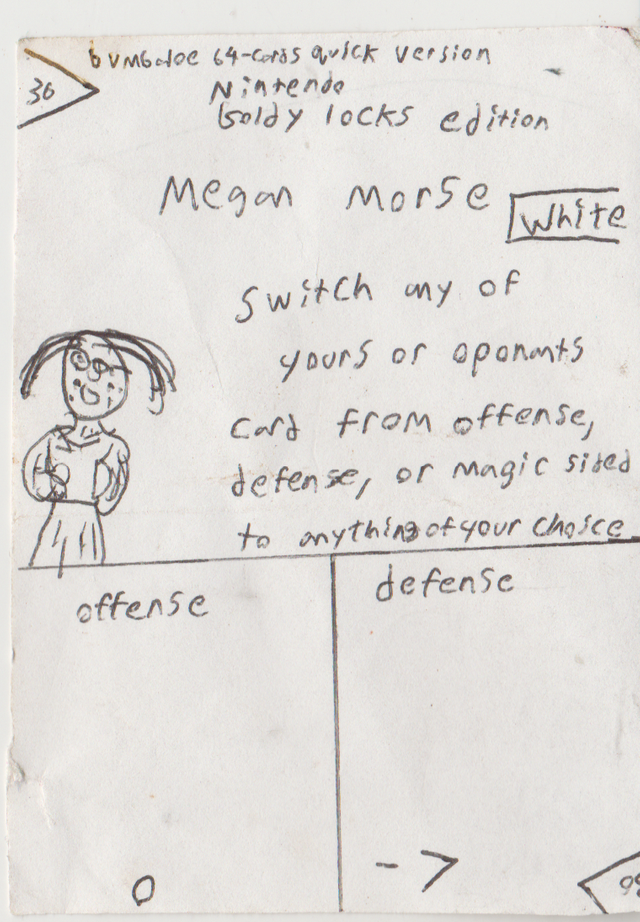 36
bvmbaloe 64-cards quick version
Nintendo
Goldy locks edition
Megan Morse
White
Switch any of
yours or oponants
card from offense,
defense, or magic sided
to anything of your choice
offense
defense
0
->